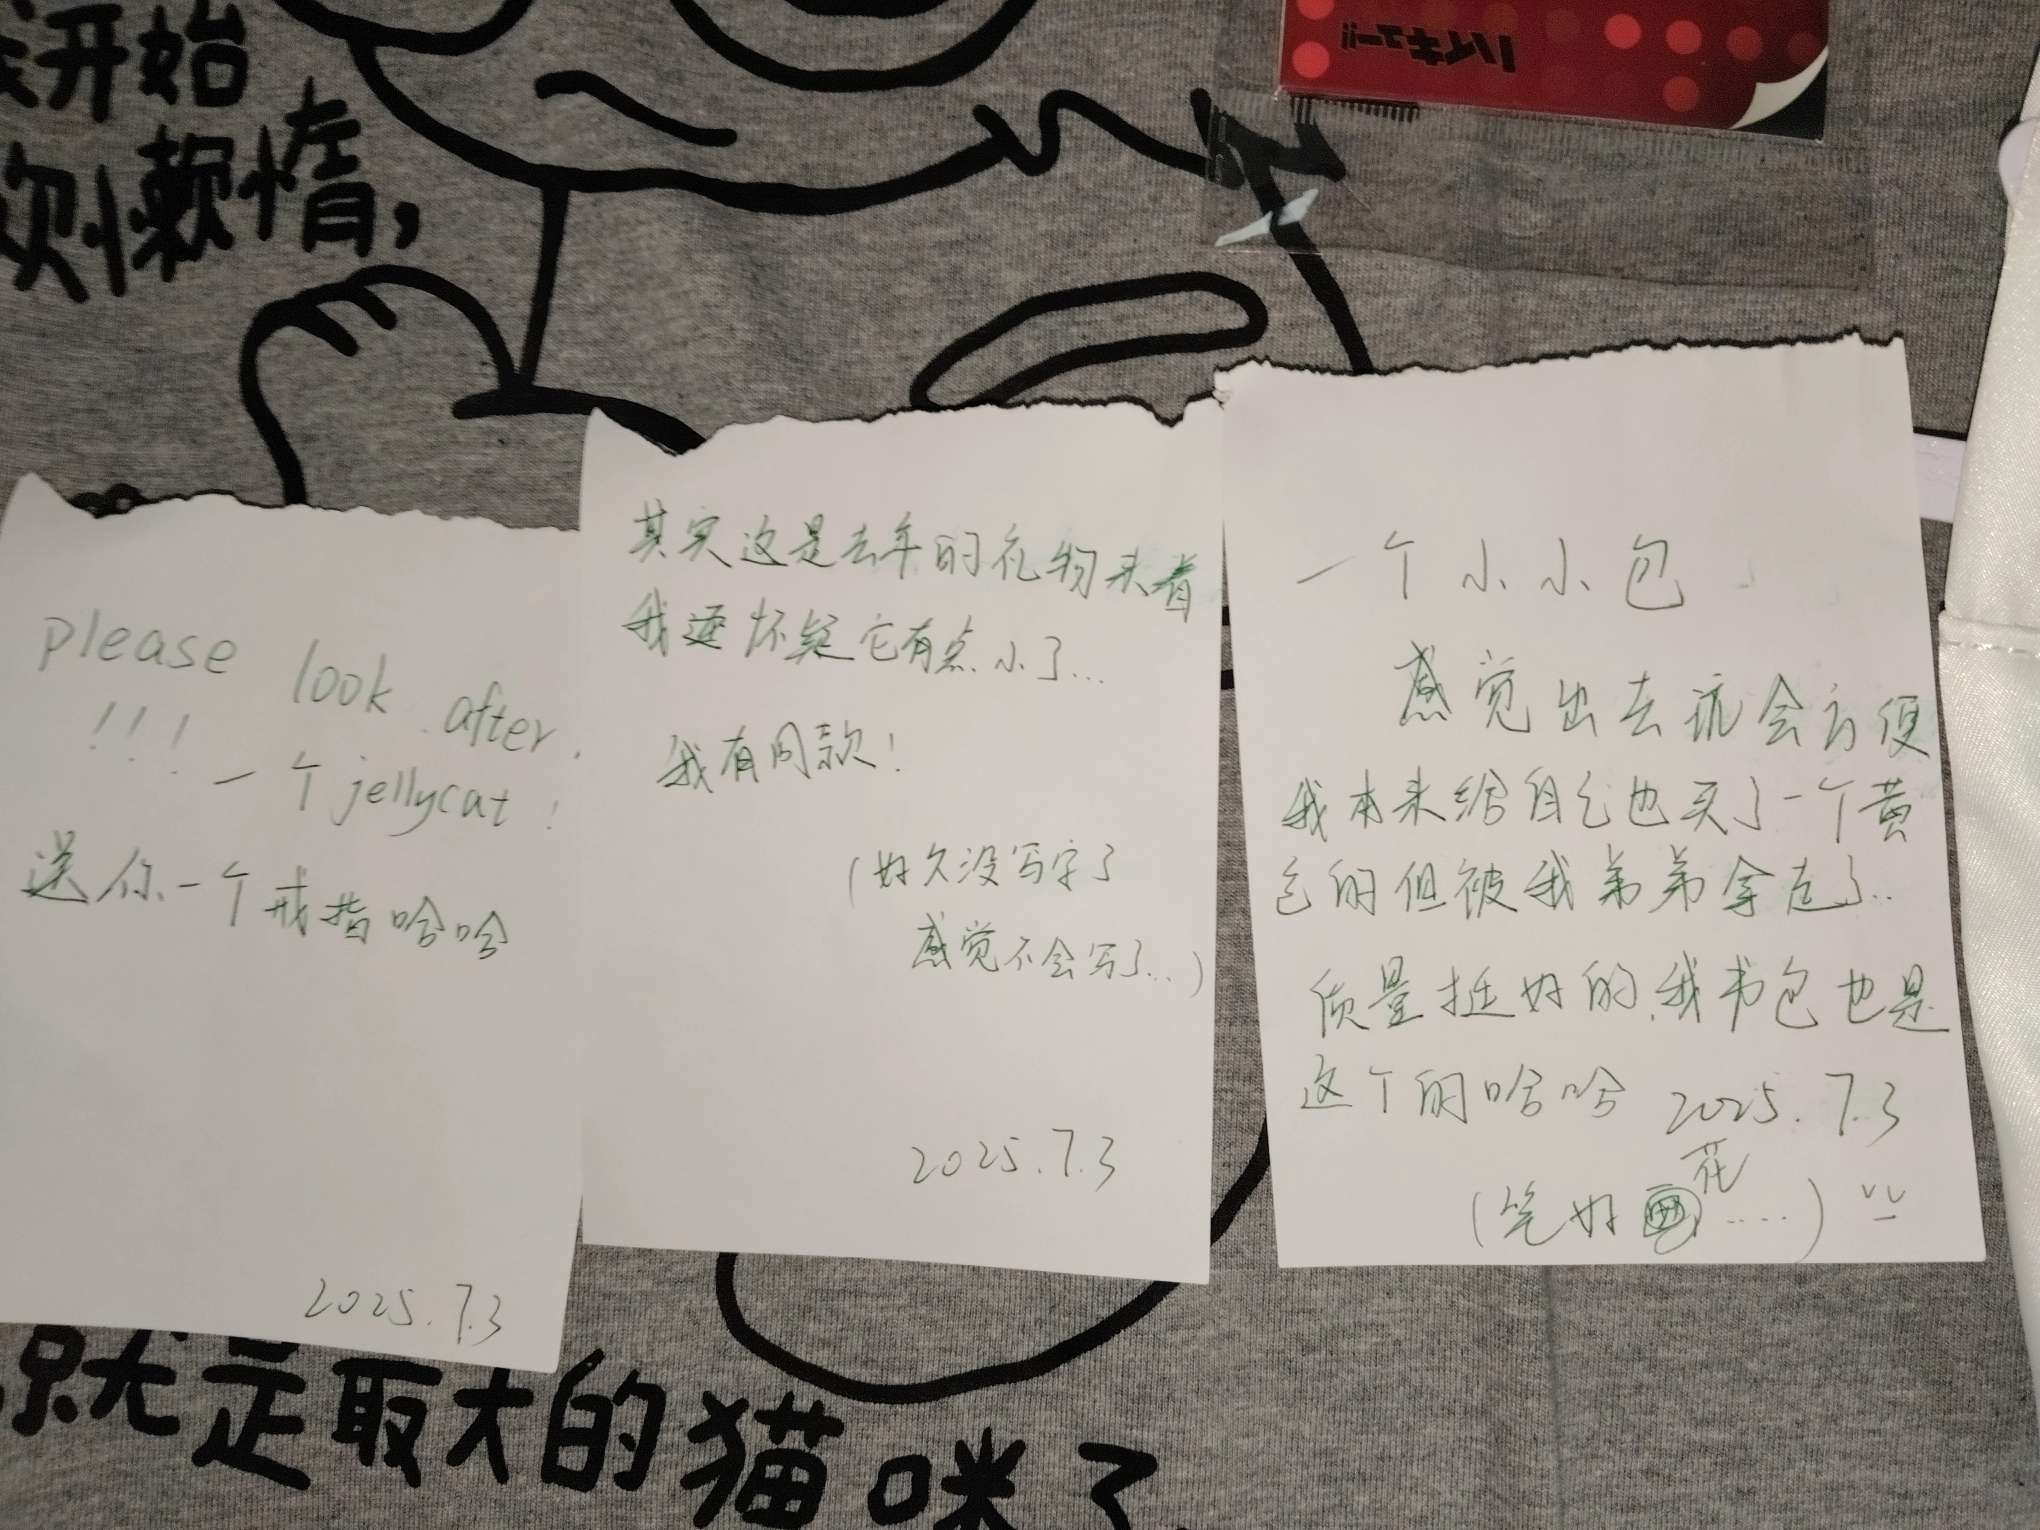 开始
懒惰,
ハイキュー!!
please look after
!!! 一个jellycat!
送你一个戒指哈哈
2025.7.3
其实这是去年的礼物来着
我还怀疑它有点小了...
我有同款!
(好久没写字了
感觉不会写了...)
2025.7.3
一个小小包
感觉出去玩会方便
我本来给自己也买了一个黄
色的但被我弟弟拿走了...
质量挺好的,我书包也是
这个的哈哈 2025.7.3
(笔好花.....)
就是最大的猫咪了